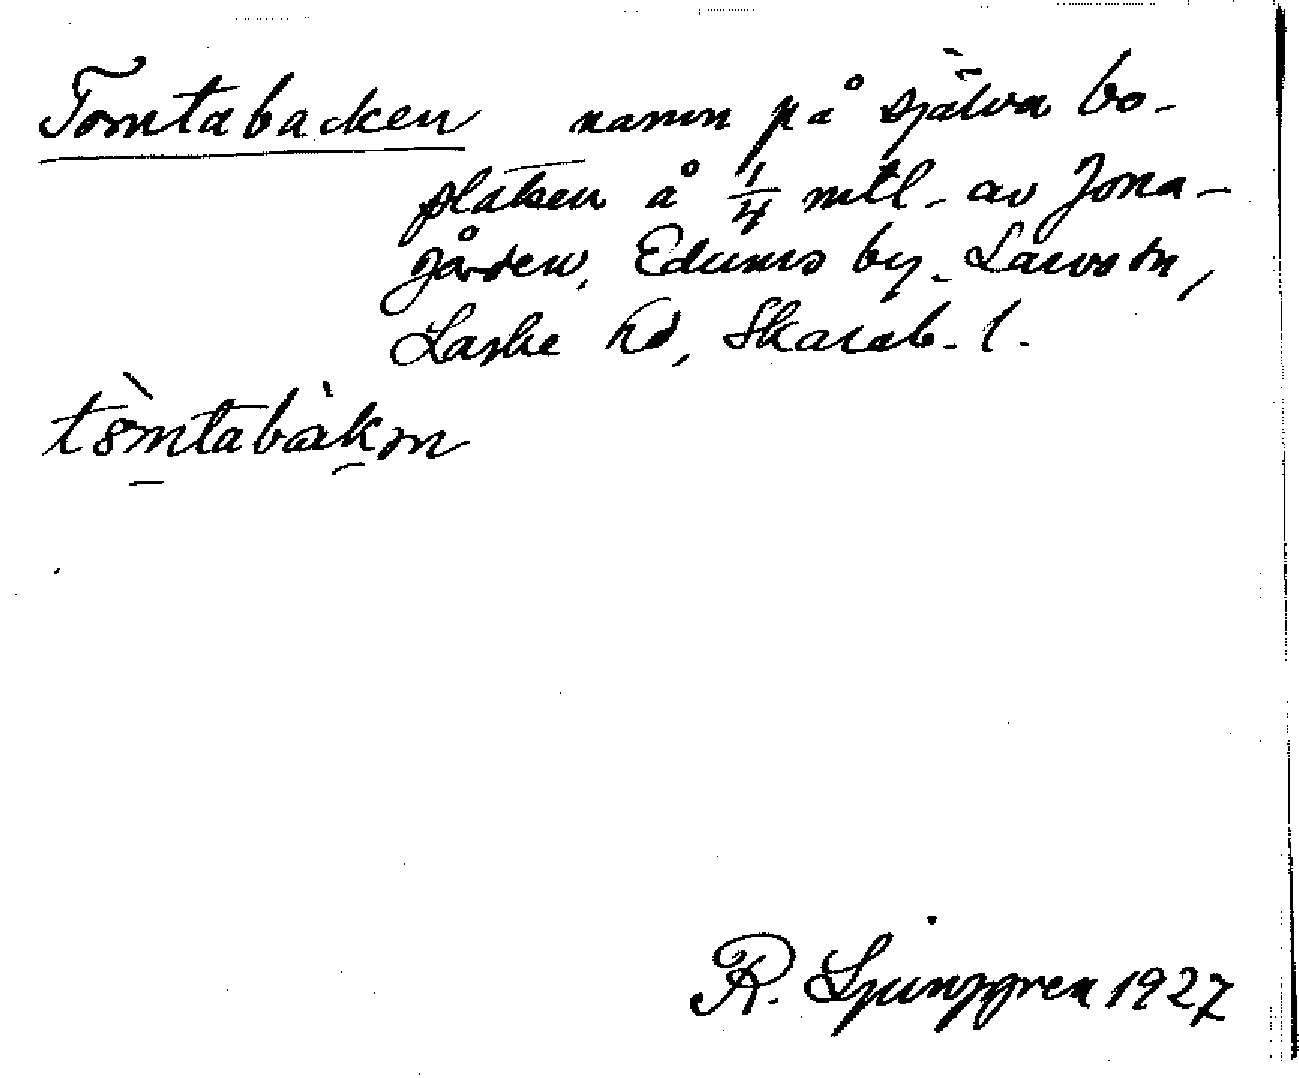 Tomtabacken namn på själva bo-
platsen å 1/4 mtl. av Jona-
gården, Edums by. Larvs sn,
Laske hd, Skarab. l.
tòmtabàkm
R. Ljunggren 1927